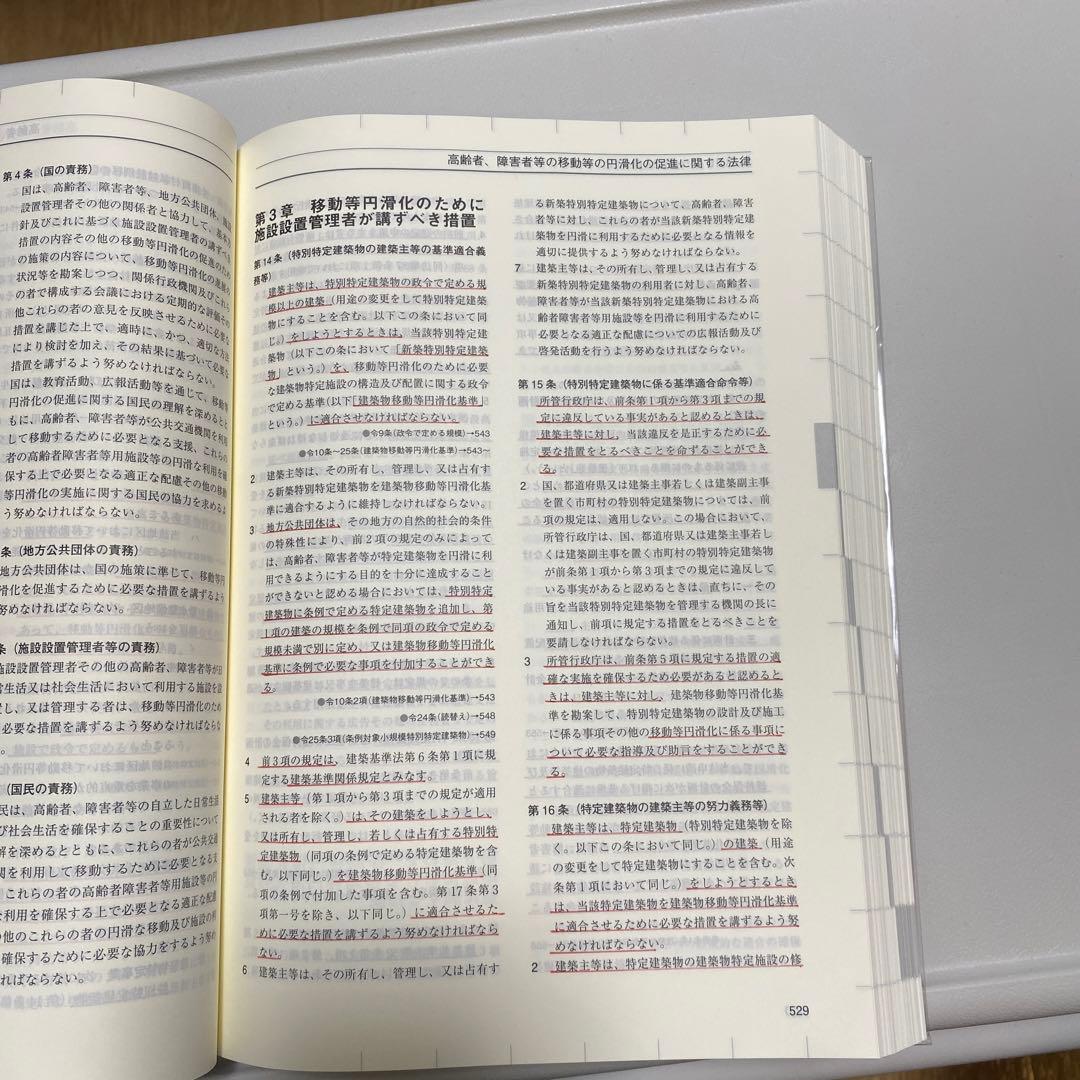 第4条（国の責務）
国は、高齢者、障害者等、地方公共団体、施設
設置管理者その他の関係者と協力して、基本方
針及びこれに基づく施設設置管理者の講ずべき
措置の内容その他の移動等円滑化の促進のため
の施策の内容について、移動等円滑化の進展の
状況等を勘案しつつ、関係行政機関及びこれら
の者で構成する会議における定期的な評価その
他これらの者の意見を反映させるために必要な
措置を講じた上で、適時に、かつ、適切な方法
により検討を加え、その結果に基づいて必要な
措置を講ずるよう努めなければならない。
国は、教育活動、広報活動等を通じて、移動等
円滑化の促進に関する国民の理解を深めるとと
もに、高齢者、障害者等が公共交通機関を利用
して移動するために必要となる支援、これらの
者の高齢者障害者等用施設等の円滑な利用を確
保する上で必要となる適正な配慮その他の移動
等円滑化の実施に関する国民の協力を求めるよ
う努めなければならない。
条（地方公共団体の責務）
地方公共団体は、国の施策に準じて、移動等円
滑化を促進するために必要な措置を講ずるよう
努めなければならない。
条（施設設置管理者等の責務）
施設設置管理者その他の高齢者、障害者等が日
常生活又は社会生活において利用する施設を設
置し、又は管理する者は、移動等円滑化のため
必要な措置を講ずるよう努めなければならな
い。
（国民の責務）
民は、高齢者、障害者等の自立した日常生活
及び社会生活を確保することの重要性について
解を深めるとともに、これらの者が公共交通
関を利用して移動するために必要となる支
これらの者の高齢者障害者等用施設等の円
な利用を確保する上で必要となる適正な配慮
の他のこれらの者の円滑な移動及び施設の利
確保するために必要な協力をするよう努め
ればならない。
高齢者、障害者等の移動等の円滑化の促進に関する法律
第3章 移動等円滑化のために
施設設置管理者が講ずべき措置
第14条（特別特定建築物の建築主等の基準適合義
務等）
建築主等は、特別特定建築物の政令で定める規
模以上の建築（用途の変更をして特別特定建築
物にすることを含む。以下この条において同
じ。）をしようとするときは、当該特別特定建
築物（以下この条において「新築特別特定建築
物」という。）を、移動等円滑化のために必要
な建築物特定施設の構造及び配置に関する政令
で定める基準（以下「建築物移動等円滑化基準」
という。）に適合させなければならない。
●令9条（政令で定める規模）→543
●令10条～25条（建築物移動等円滑化基準）→543～
2 建築主等は、その所有し、管理し、又は占有す
る新築特別特定建築物を建築物移動等円滑化基
準に適合するように維持しなければならない。
3 地方公共団体は、その地方の自然的社会的条件
の特殊性により、前2項の規定のみによって
は、高齢者、障害者等が特定建築物を円滑に利
用できるようにする目的を十分に達成すること
ができないと認める場合においては、特別特定
建築物に条例で定める特定建築物を追加し、第
1項の建築の規模を条例で同項の政令で定める
規模未満で別に定め、又は建築物移動等円滑化
基準に条例で必要な事項を付加することができ
る。
●令10条2項（建築物移動等円滑化基準）→543
●令24条（読替え）→548
●令25条3項（条例対象小規模特別特定建築物）→549
4 前3項の規定は、建築基準法第6条第1項に規
定する建築基準関係規定とみなす。
5 建築主等（第1項から第3項までの規定が適用
される者を除く。）は、その建築をしようとし、
又は所有し、管理し、若しくは占有する特別特
定建築物（同項の条例で定める特定建築物を含
む。以下同じ。）を建築物移動等円滑化基準（同
項の条例で付加した事項を含む。第17条第3
項第一号を除き、以下同じ。）に適合させるた
めに必要な措置を講ずるよう努めなければなら
ない。
6 建築主等は、その所有し、管理し、又は占有す
る新築特別特定建築物について、高齢者、障害
者等に対し、これらの者が当該新築特別特定建
築物を円滑に利用するために必要となる情報を
適切に提供するよう努めなければならない。
7 建築主等は、その所有し、管理し、又は占有する
新築特別特定建築物の利用者に対し、高齢者、
障害者等が当該新築特別特定建築物における高
齢者障害者等用施設等を円滑に利用するために
必要となる適正な配慮についての広報活動及び
啓発活動を行うよう努めなければならない。
第15条（特別特定建築物に係る基準適合命令等）
所管行政庁は、前条第1項から第3項までの規
定に違反している事実があると認めるときは、
建築主等に対し、当該違反を是正するために必
要な措置をとるべきことを命ずることができ
る。
2 国、都道府県又は建築主事若しくは建築副主事
を置く市町村の特別特定建築物については、前
項の規定は、適用しない。この場合において、
所管行政庁は、国、都道府県又は建築主事若し
くは建築副主事を置く市町村の特別特定建築物
が前条第1項から第3項までの規定に違反して
いる事実があると認めるときは、直ちに、その
旨を当該特別特定建築物を管理する機関の長に
通知し、前項に規定する措置をとるべきことを
要請しなければならない。
3 所管行政庁は、前条第5項に規定する措置の適
確な実施を確保するため必要があると認めると
きは、建築主等に対し、建築物移動等円滑化基
準を勘案して、特別特定建築物の設計及び施工
に係る事項その他の移動等円滑化に係る事項に
ついて必要な指導及び助言をすることができ
る。
第16条（特定建築物の建築主等の努力義務等）
建築主等は、特定建築物（特別特定建築物を除
く。以下この条において同じ。）の建築（用途
の変更をして特定建築物にすることを含む。次
条第1項において同じ。）をしようとするとき
は、当該特定建築物を建築物移動等円滑化基準
に適合させるために必要な措置を講ずるよう努
めなければならない。
2 建築主等は、特定建築物の建築物特定施設の修
529